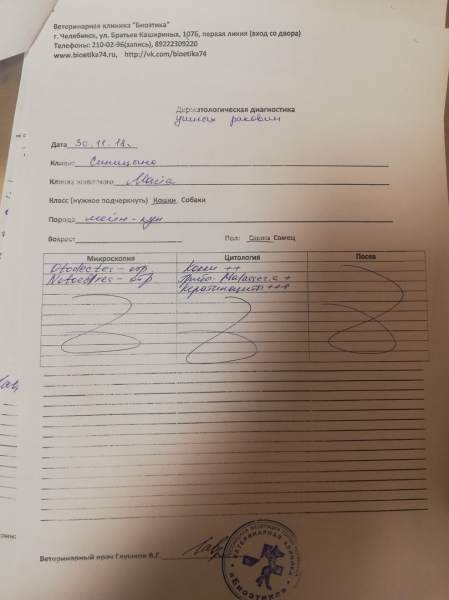 Ветеринарная клиника "Биоэтика"
г. Челябинск, ул. Братьев Кашириных, 107Б, первая линия (вход со двора)
Телефоны: 210-02-96(запись), 89222309220
www.bioetika74.ru, http://vk.com/bioetika74
Дерматологическая диагностика
ушных раковин
Дата 30.11.18.
Клиент Синицына
Кличка животного Maia
Класс (нужное подчеркнуть) Кошки Собаки
Порода мейн-кун
Возраст Пол: Самка Самец
Микроскопия Цитология Посев
Otodectes - отр Кокки ++
Notoedres - отр Грибы Malassezia +
Кератиноциты +++
Ветеринарный врач Глухков В.Г.
ВЕТЕРИНАРНАЯ КЛИНИКА
«Биоэтика»